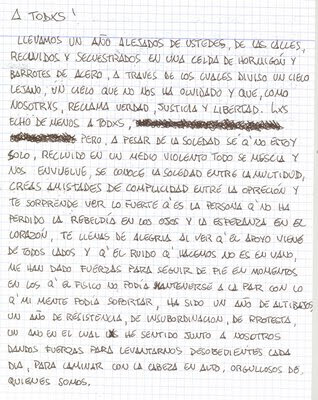 A TODXS!
LLEVAMOS UN AÑO ALEJADOS DE USTEDES, DE LAS CALLES,
RECLUIDOS Y SECUESTRADOS EN UNA CELDA DE HORMIGON Y
BARROTES DE ACERO, A TRAVES DE LOS CUALES DIVISO UN CIELO
LEJANO, UN CIELO QUE NO NOS HA OLVIDADO Y QUE, COMO
NOSOTRXS, RECLAMA VERDAD, JUSTICIA Y LIBERTAD. LXS
ECHO DE MENOS A TODXS,
PERO, A PESAR DE LA SOLEDAD SE Q' NO ESTOY
SOLO, RECLUIDO EN UN MEDIO VIOLENTO TODO SE MEZCLA Y
NOS ENVUELVE, SE CONOCE LA SOLEDAD ENTRE LA MULTITUD,
CREAS AMISTADES DE COMPLICIDAD ENTRE LA OPRECIÓN Y
TE SORPRENDE VER LO FUERTE Q' ES LA PERSONA Q' NO HA
PERDIDO LA REBELDÍA EN LOS OJOS Y LA ESPERANZA EN EL
CORAZÓN, TE LLENAS DE ALEGRIA AL VER Q' EL APOYO VIENE
DE TODOS LADOS Y Q' EL RUIDO Q' HACEMOS NO ES EN VANO,
ME HAN DADO FUERZAS PARA SEGUIR DE PIE EN MOMENTOS
EN LOS Q' EL FISICO NO PODÍA MANTENERSE A LA PAR CON LO
Q' MI MENTE PODIA SOPORTAR, HA SIDO UN AÑO DE ALTIBAJOS,
UN AÑO DE RESISTENCIA, DE INSUBORDINACION, DE PROTESTA,
UN AÑO EN EL CUAL HE SENTIDO JUNTO A NOSOTROS
DANDOS FUERZAS PARA LEVANTARNOS DESOBEDIENTES CADA
DIA, PARA CAMINAR CON LA CABEZA EN ALTO, ORGULLOSOS DE
QUIENES SOMOS.